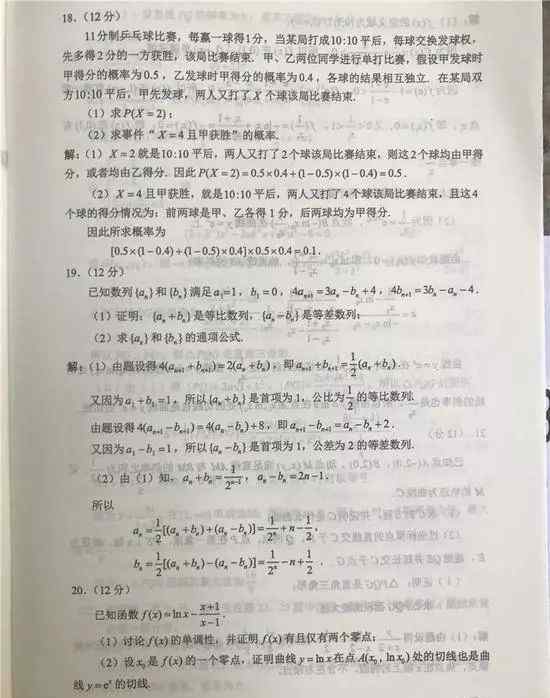 18.（12分）
11分制乒乓球比赛，每赢一球得1分，当某局打成10:10平后，每球交换发球权，
先多得2分的一方获胜，该局比赛结束. 甲、乙两位同学进行单打比赛，假设甲发球时
甲得分的概率为0.5，乙发球时甲得分的概率为0.4，各球的结果相互独立. 在某局双
方10:10平后，甲先发球，两人又打了X个球该局比赛结束.
（1）求P(X=2)；
（2）求事件“X=4且甲获胜”的概率.
解：（1）X=2就是10:10平后，两人又打了2个球该局比赛结束，则这2个球均由甲得
分，或者均由乙得分. 因此P(X=2)=0.5×0.4+(1-0.5)×(1-0.4)=0.5.
（2）X=4且甲获胜，就是10:10平后，两人又打了4个球该局比赛结束，且这4
个球的得分情况为：前两球是甲、乙各得1分，后两球均为甲得分.
因此所求概率为
[0.5×(1-0.4)+(1-0.5)×0.4]×0.5×0.4=0.1.
19.（12分）
已知数列{aₙ}和{bₙ}满足a₁=1，b₁=0，4aₙ₊₁=3aₙ-bₙ+4，4bₙ₊₁=3bₙ-aₙ-4.
（1）证明：{aₙ+bₙ}是等比数列，{aₙ-bₙ}是等差数列；
（2）求{aₙ}和{bₙ}的通项公式.
解：（1）由题设得4(aₙ₊₁+bₙ₊₁)=2(aₙ+bₙ)，即aₙ₊₁+bₙ₊₁=1/2(aₙ+bₙ).
又因为a₁+b₁=1，所以{aₙ+bₙ}是首项为1，公比为1/2的等比数列.
由题设得4(aₙ₊₁-bₙ₊₁)=4(aₙ-bₙ)+8，即aₙ₊₁-bₙ₊₁=aₙ-bₙ+2.
又因为a₁-b₁=1，所以{aₙ-bₙ}是首项为1，公差为2的等差数列.
（2）由（1）知，aₙ+bₙ=1/2ⁿ⁻¹，aₙ-bₙ=2n-1.
所以
aₙ=1/2[(aₙ+bₙ)+(aₙ-bₙ)]=1/2ⁿ+n-1/2，
bₙ=1/2[(aₙ+bₙ)-(aₙ-bₙ)]=1/2ⁿ-n+1/2.
20.（12分）
已知函数f(x)=lnx-(x+1)/(x-1).
（1）讨论f(x)的单调性，并证明f(x)有且仅有两个零点；
（2）设x₀是f(x)的一个零点，证明曲线y=lnx在点A(x₀, lnx₀)处的切线也是曲
线y=eˣ的切线.